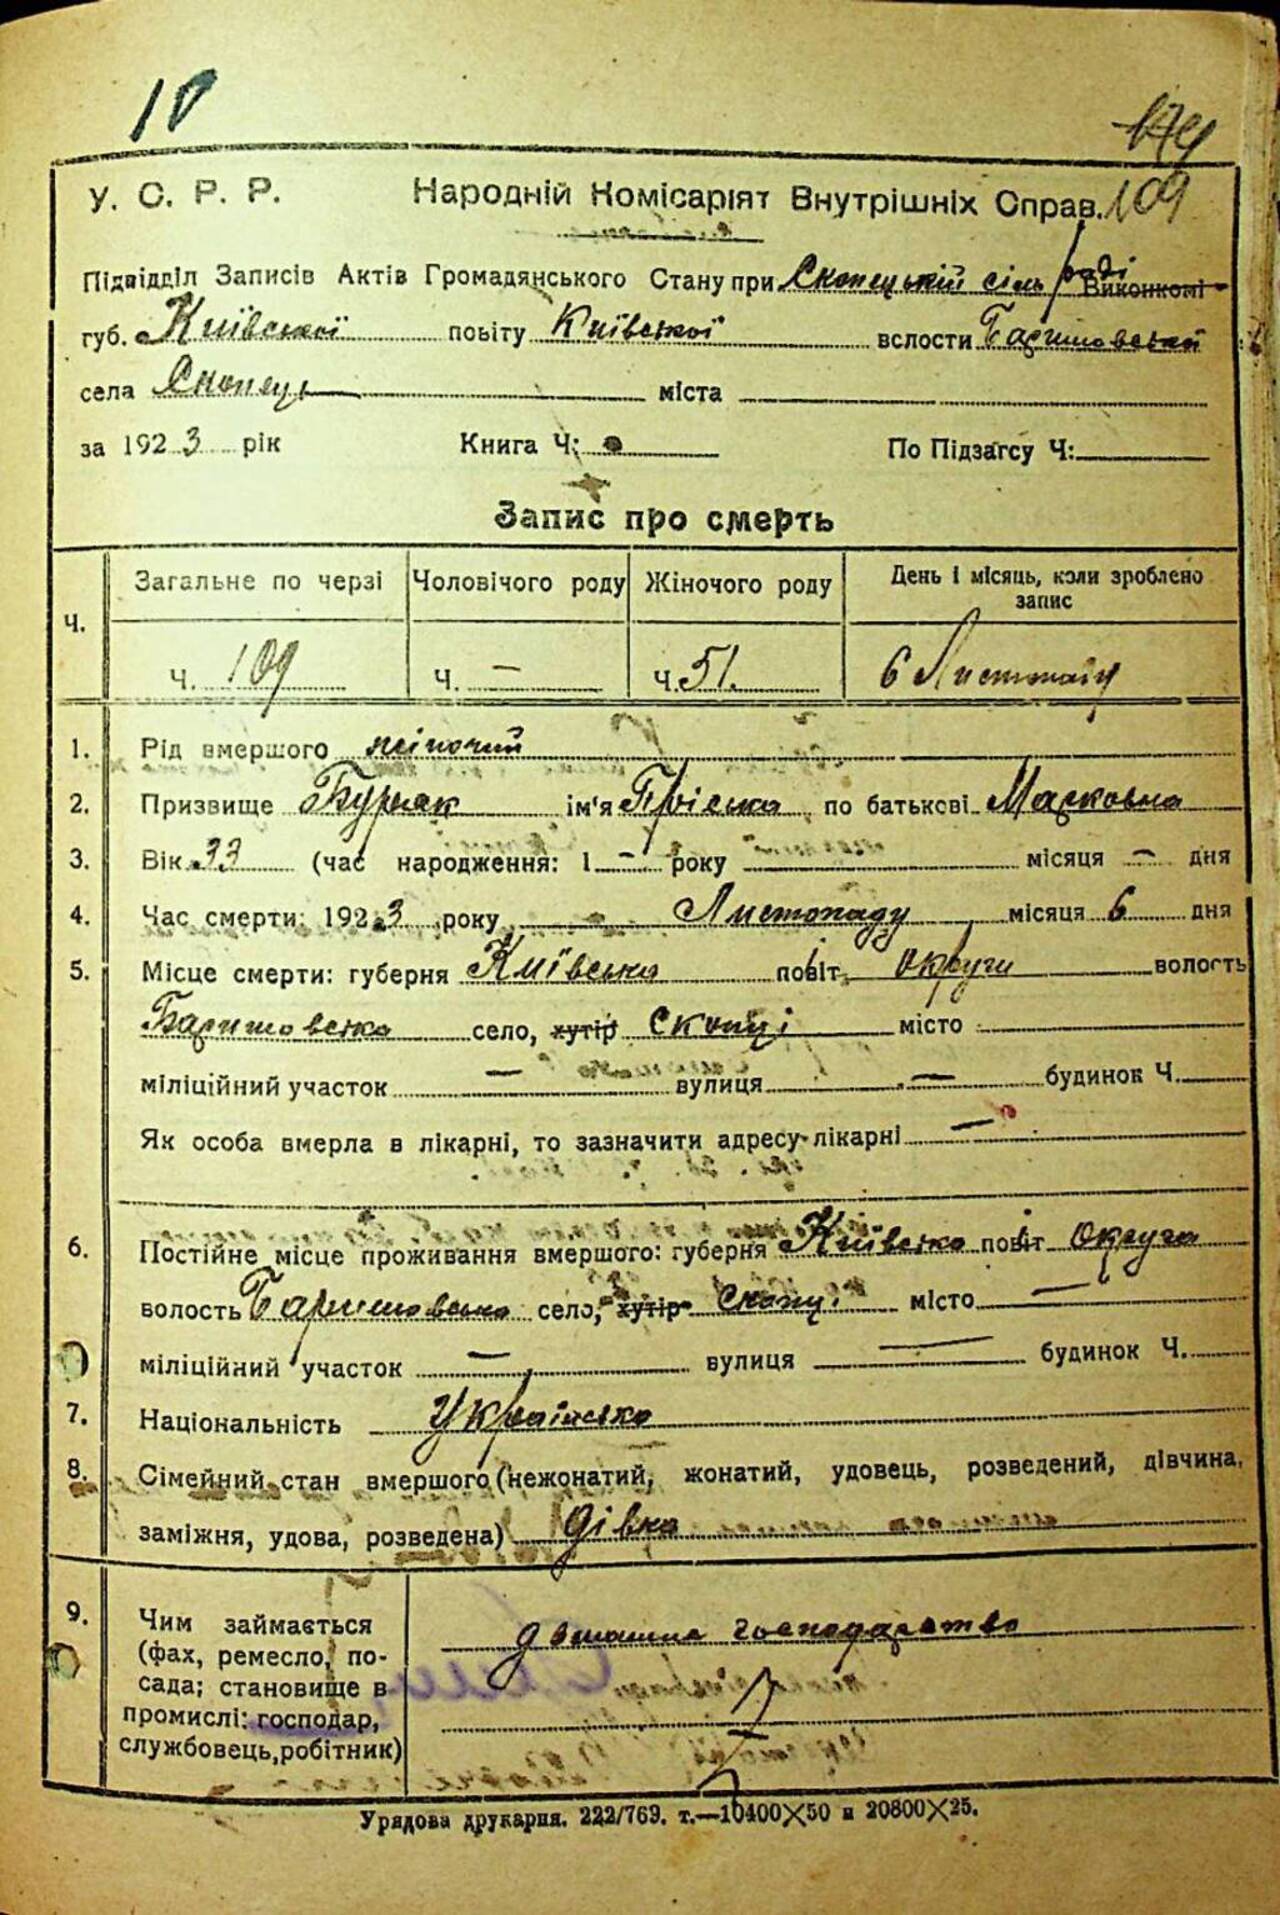 10
109
У. С. Р. Р. Народній Комісаріят Внутрішніх Справ.
Підвідділ Записів Актів Громадянського Стану при Скопецькій сіль раді Виконкомі
губ. Київської повіту Київської волости Баришовської
села Скопець міста
за 1923 рік Книга Ч: По Підзагсу Ч:
Запис про смерть
Ч. Загальне по черзі Чоловічого роду Жіночого роду День і місяць, коли зроблено
запис
Ч. 109 Ч. — Ч. 51. 6 Листопаду
1. Рід вмершого жіночий
2. Призвище Бурлак ім'я Пріська по батькові Марковна
3. Вік 33 (час народження: 1 — року місяця — дня
4. Час смерти: 1923 року Листопаду місяця 6 дня
5. Місце смерти: губерня Київська повіт округи волость
Баришовська село, хутір Скопці місто
міліційний участок — вулиця — будинок Ч.
Як особа вмерла в лікарні, то зазначити адресу лікарні —
6. Постійне місце проживання вмершого: губерня Київська повіт округа
волость Баришовська село, хутір Скопці місто —
міліційний участок — вулиця — будинок Ч.
7. Національність Українська
8. Сімейний стан вмершого (нежонатий, жонатий, удовець, розведений, дівчина,
заміжня, удова, розведена) дівка
9. Чим займається
(фах, ремесло, по-
сада; становище в
промислі: господар,
службовець, робітник)
домашнє господарство
Урядова друкарня. 222/769. т.—10400×50 и 20800×25.